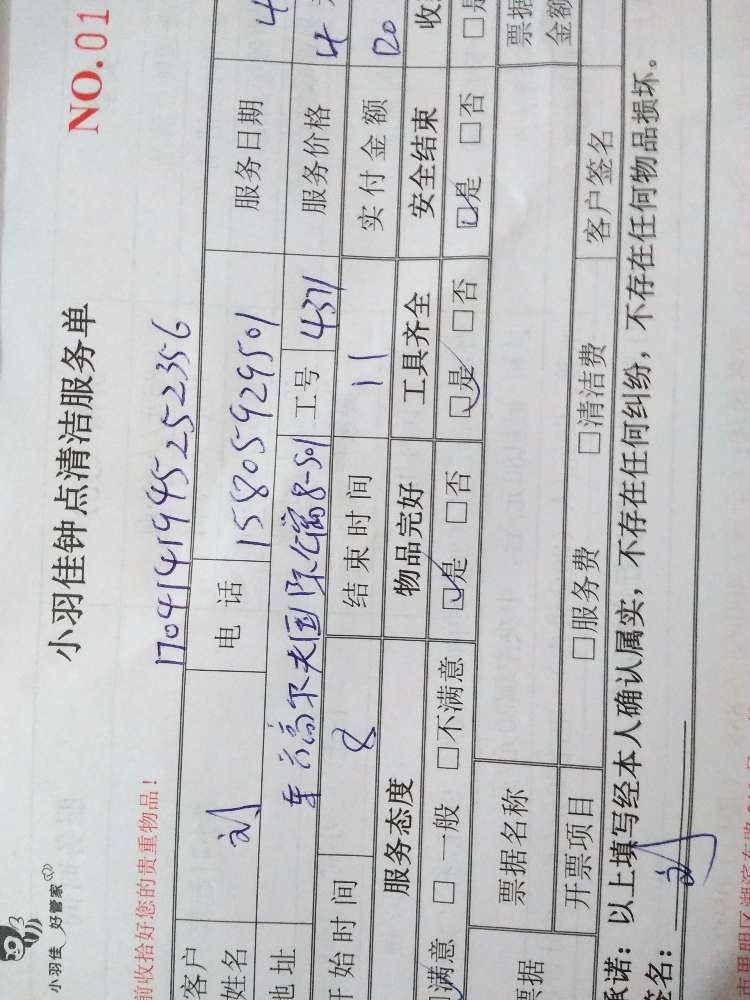 小羽佳 好管家
小羽佳钟点清洁服务单
NO.01
前收拾好您的贵重物品!
17041419945252356
客户姓名 刘 电话 15805929501 服务日期 4
地址 国际公寓8-501 工号 4371 服务价格 4
开始时间 8 结束时间 11 实付金额 120
服务态度 物品完好 工具齐全 安全结束 收
满意 □一般 □不满意 □是 □否 □是 □否 □是 □否 □是
票据名称 票据金额
票据 开票项目 □服务费 □清洁费 客户签名
承诺:以上填写经本人确认属实,不存在任何纠纷,不存在任何物品损坏。
签名: 刘